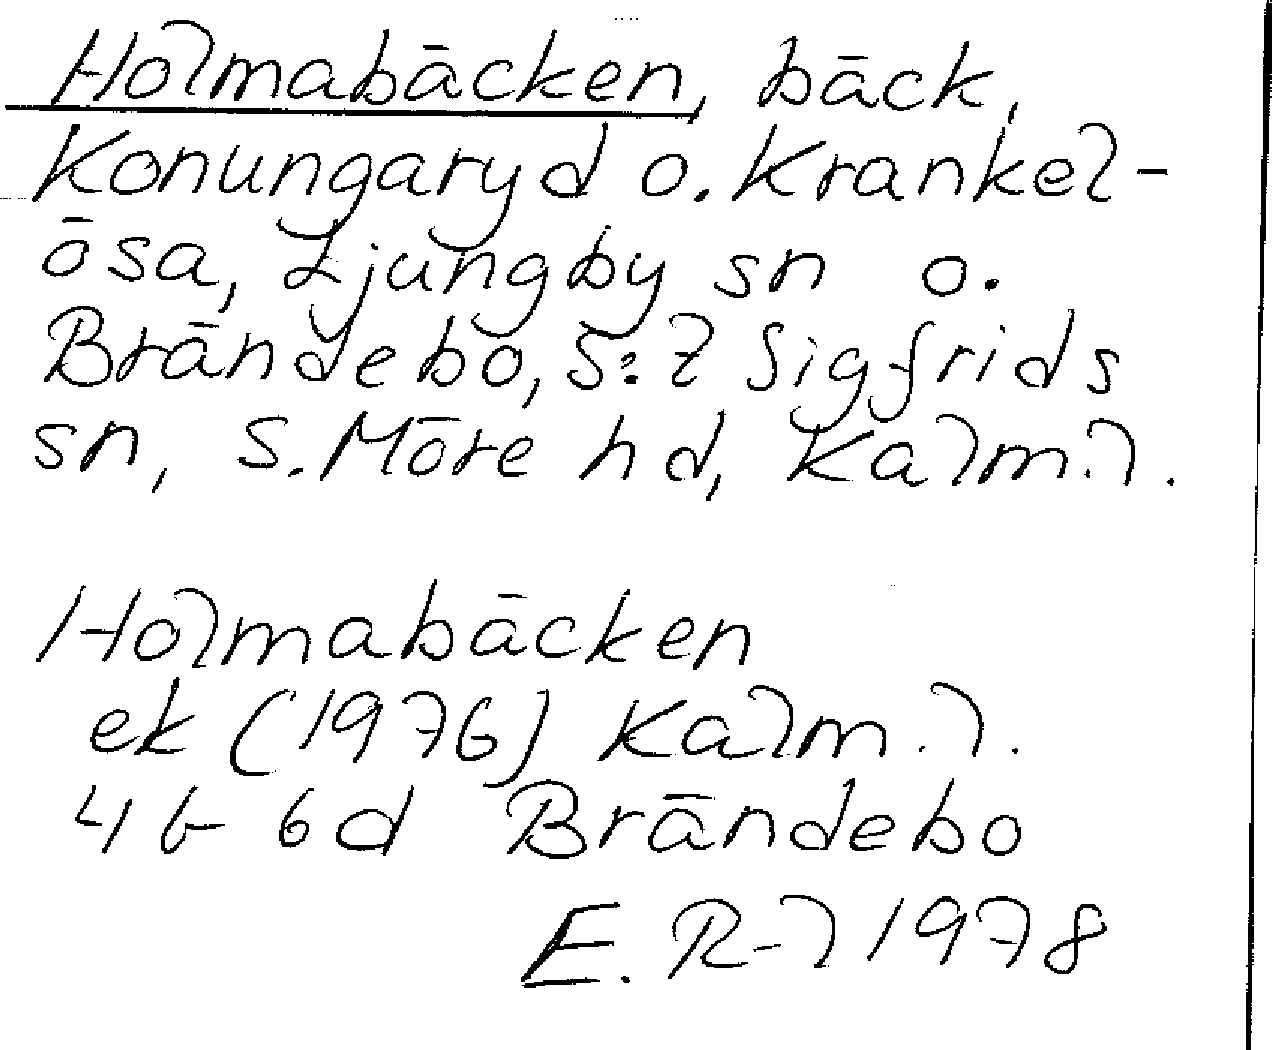 Holmabäcken, bäck,
Konungaryd o. Krankel-
ösa, Ljungby sn o.
Brändebo, S:t Sigfrids
sn, S. Möre hd, Kalm. l.
Holmabäcken
ek (1976) Kalm. l.
4 G 6d Brändebo
E. R-l 1978